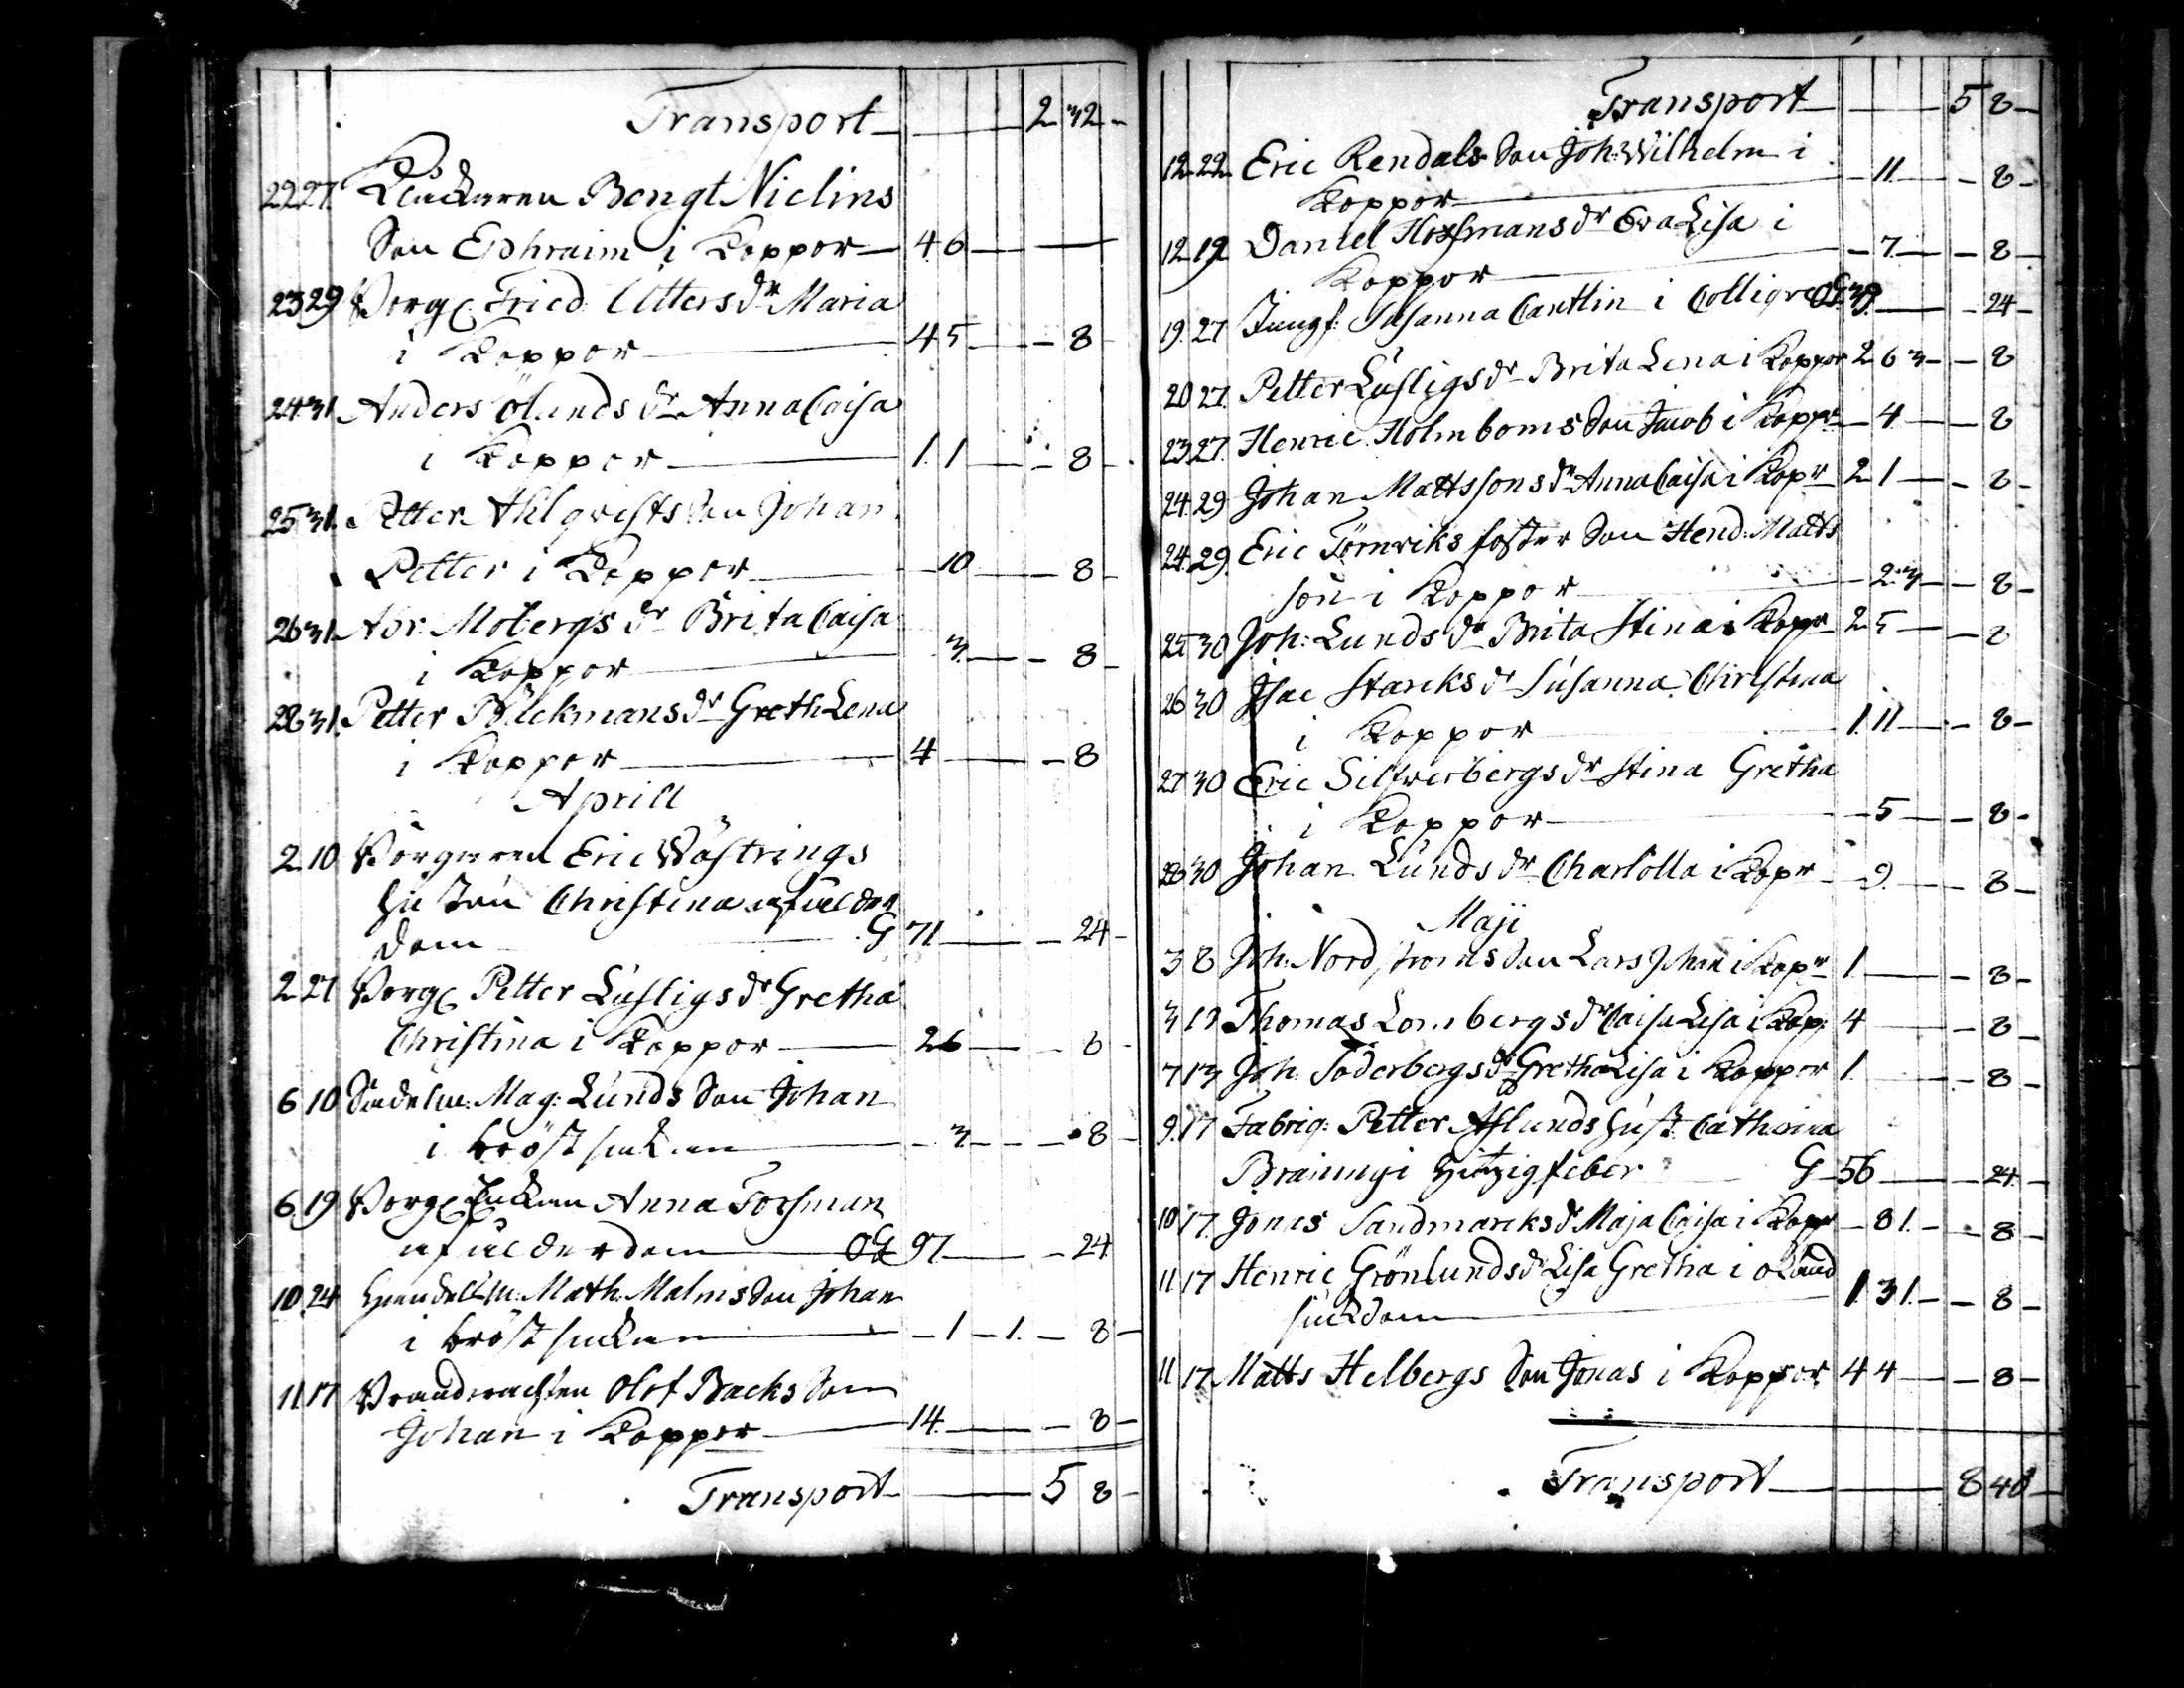 Transport 2 32
22 27 Klåckaren Bengt Niclins
Son Ephraim i Koppor 4 6
23 29 Borg: Fried: Utters dr Maria
i Koppor 4 5 8
24 31 Anders Ölunds dr Anna Caisa
i Koppor 1. 1 8
25 31. Petter Ahlqvists Son Johan
Petter i Koppor 10 8
26 31 Abr: Mobergs dr Brita Caisa
i Koppor 3. 8
28 31. Petter Bäckmans dr Greth Lena
i Koppor 4 8
Aprill
2 10 Borgaren Eric Wästrings
Hustru Christina af ålder
dom G 71 24
2 27 Borg: Petter Lustigs dr Gretha
Christina i Koppor 2 6 8
6 10 Sadelm: Mag: Lunds Son Johan
i bröstsiukan 3 8
6 19 Borg: Enkan Anna Forsman
af ålderdom OG 97 24
10 24 Handelsm: Math: Malms Son Johan
i bröstsiukan 1 1. 8
11 17 Brandwachten Olof Backs Son
Johan i Koppor 14. 8
Transport 5 8
Transport 5 8
12 22 Eric Rendals Son Joh: Wilhelm i
Koppor 11. 8
12 19 Daniel Hofmans dr Eva Lisa i
Koppor 7. 8
19. 27 Jungf: Susanna Cantlin i Colliqve OG. 39. 24
20 27. Petter Lustigs dr Brita Lena i Koppor 2 6 3 8
23 27. Henric Holmboms Son Jacob i Kopp: 4 8
24. 29 Johan Mattssons dr Anna Caisa i Kopr 2 1 8
24. 29. Eric Törnviks foster Son Hend: Matts
son i Koppor 2. 3 8
25 30 Joh: Lunds dr Brita Stina i Kopr 2 5 8
26 30 Isac Starcks dr Susanna Christina
i Koppor 1. 11 8
27 30 Eric Silfverbergs dr Stina Gretha
i Koppor 5 8
28 30 Johan Lunds dr Charlotta i Kopr 9. 8
Maji
3 8 Joh: Nordströms Son Lars Johan i Kopr 1 8
3 13 Thomas Lombergs dr Caisa Lisa i Kop: 4 8
7 13 Joh: Söderbergs dr Gretha Lisa i Koppor 1. 8
9. 17 Fabriq: Petter Aslunds Hust: Catharina
i Hitzig feber G 56 24.
10 17. Jonas Sandmarcks dr Maja Caisa i Kopr 8 1. 8
11 17 Henric Grönlunds dr Lisa Gretha i okänd
siukdom 1. 3 1. 8
11 17. Matts Helbergs Son Jonas i Koppor 4 4 8
Transport 8 40